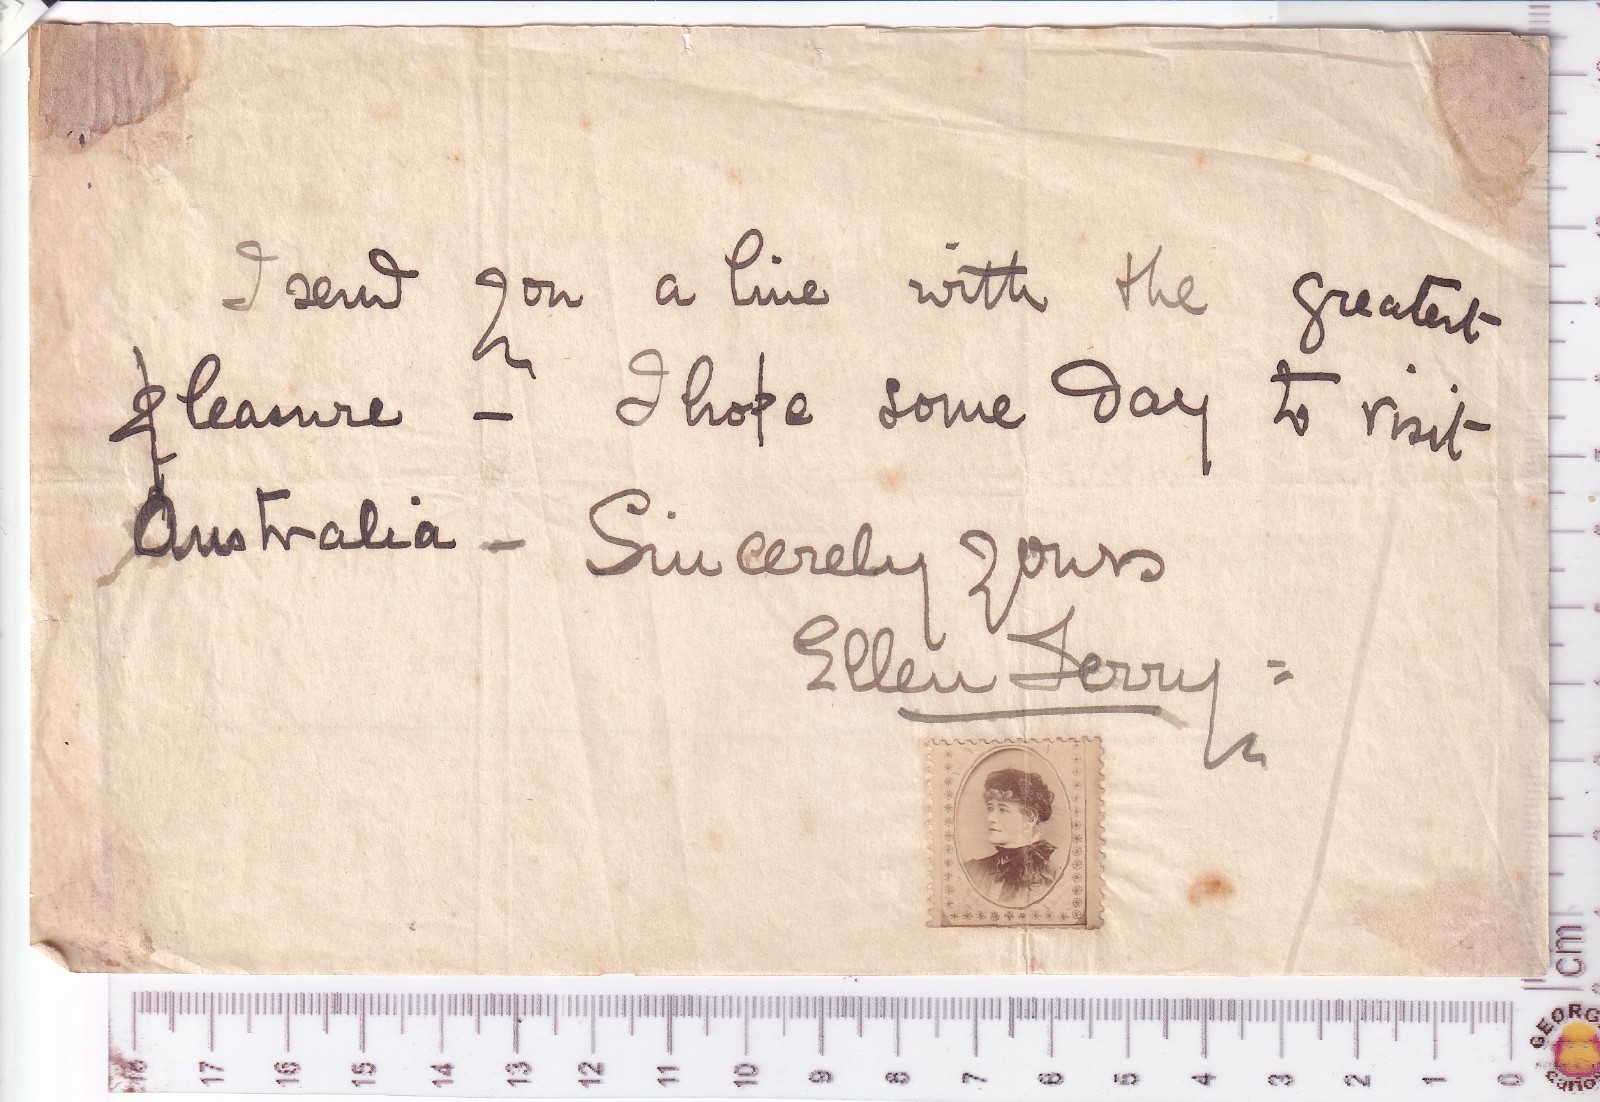 I send you a line with the greatest
pleasure – I hope some day to visit
Australia – Sincerely yours
Ellen Terry =
18 17 16 15 14 13 12 11 10 9 8 7 6 5 4 3 2 1 0
cm
GEORG
Curio